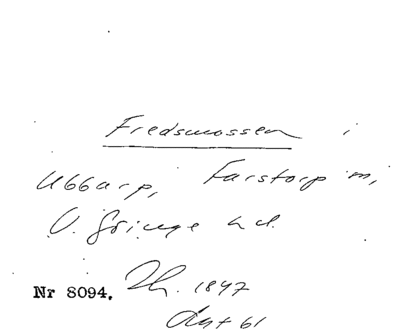 Fredsmossen i
Ubbarp, Farstorp m,
V. Göinge hd.
Nr 8094. Zh. 1847
Akt 61